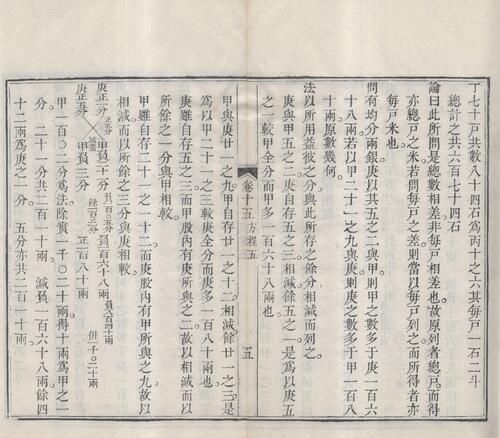 丁七十戸共數八十四石爲丙十之六其每戸一石二斗
總計之共六百七十四石
論曰此所問是總數相差非每戸相差也故原列者總戸而得
亦總戸之米若問每戸之差則當以每戸列之而所得者亦
每戸米也
問有均分兩銀庚以其五之二與甲則甲之數多于庚一百六
十八兩若以甲二十一之九與庚則庚之數多于甲一百八
十兩原數幾何
法以所用益彼之分與此所存之餘分相減而列之
庚與甲五之二庚自存五之三相減餘五之一是爲以庚五
之一較甲全分而甲多一百六十八兩也
卷十五 方程五
五
甲與庚廿一之九甲自存廿一之十二相減餘廿一之三是
爲以甲二十一之三較庚全分而庚多一百八十兩也
庚雖自存五之三而甲股内有庚所與之二故以相減而以
所餘之一分與甲相較
甲雖自存二十一之一十二而庚股内有甲所與之九故以
相減而以所餘之三分與庚相較
庚正一分 甲負二十一分 負一百六十八兩
庚正五分 甲負三分 正一百八十兩
併一千〇二十兩
甲一百〇二分爲法除實一千〇二十兩得十兩爲甲之一
分 二十一分共二百一十兩 減負一百六十八兩餘四
十二兩爲庚之一分 五分亦共二百一十兩